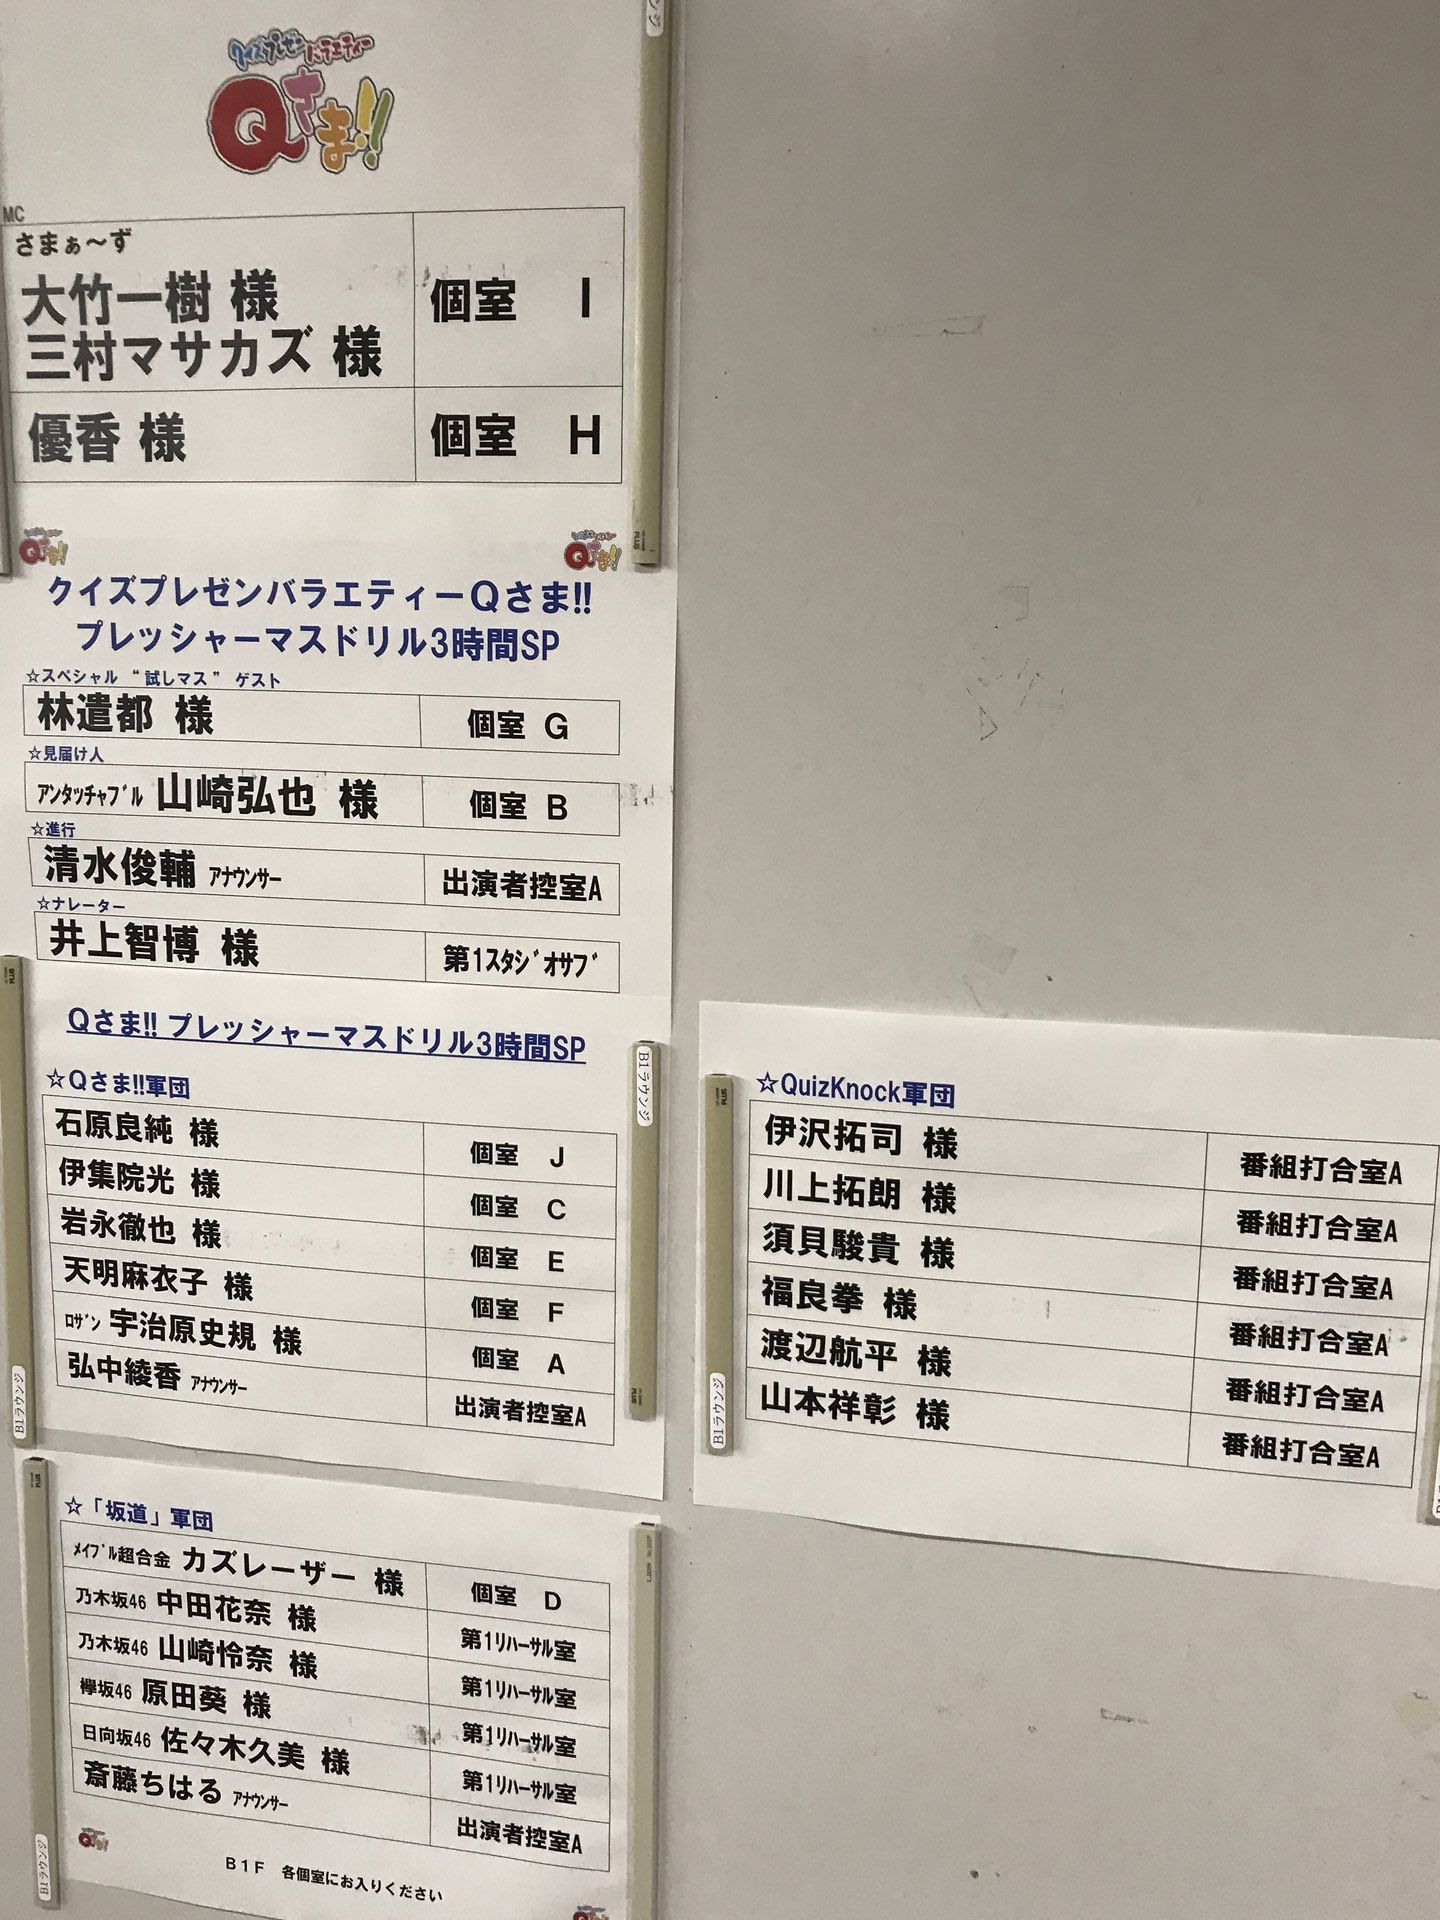 クイズプレゼンバラエティー
Qさま!!
MC
さまぁ～ず
大竹一樹 様
三村マサカズ 様
個室 I
優香 様 個室 H
Qさま!!
Qさま!!
クイズプレゼンバラエティーQさま!!
プレッシャーマスドリル3時間SP
☆スペシャル “試しマス” ゲスト
林遣都 様 個室 G
☆見届け人
アンタッチャブル 山崎弘也 様 個室 B
☆進行
清水俊輔 アナウンサー 出演者控室A
☆ナレーター
井上智博 様 第1スタジオサブ
Qさま!! プレッシャーマスドリル3時間SP
☆Qさま!!軍団
石原良純 様 個室 J
伊集院光 様 個室 C
岩永徹也 様 個室 E
天明麻衣子 様 個室 F
ロザン 宇治原史規 様 個室 A
弘中綾香 アナウンサー 出演者控室A
☆QuizKnock軍団
伊沢拓司 様 番組打合室A
川上拓朗 様 番組打合室A
須貝駿貴 様 番組打合室A
福良拳 様 番組打合室A
渡辺航平 様 番組打合室A
山本祥彰 様 番組打合室A
☆「坂道」軍団
メイプル超合金 カズレーザー 様 個室 D
乃木坂46 中田花奈 様 第1リハーサル室
乃木坂46 山崎怜奈 様 第1リハーサル室
欅坂46 原田葵 様 第1リハーサル室
日向坂46 佐々木久美 様 第1リハーサル室
斎藤ちはる アナウンサー 出演者控室A
Qさま!!
B1F 各個室にお入りください
B1ラウンジ
B1ラウンジ
B1ラウンジ
B1ラウンジ
PLUS
PLUS
PLUS
PLUS
PLUS